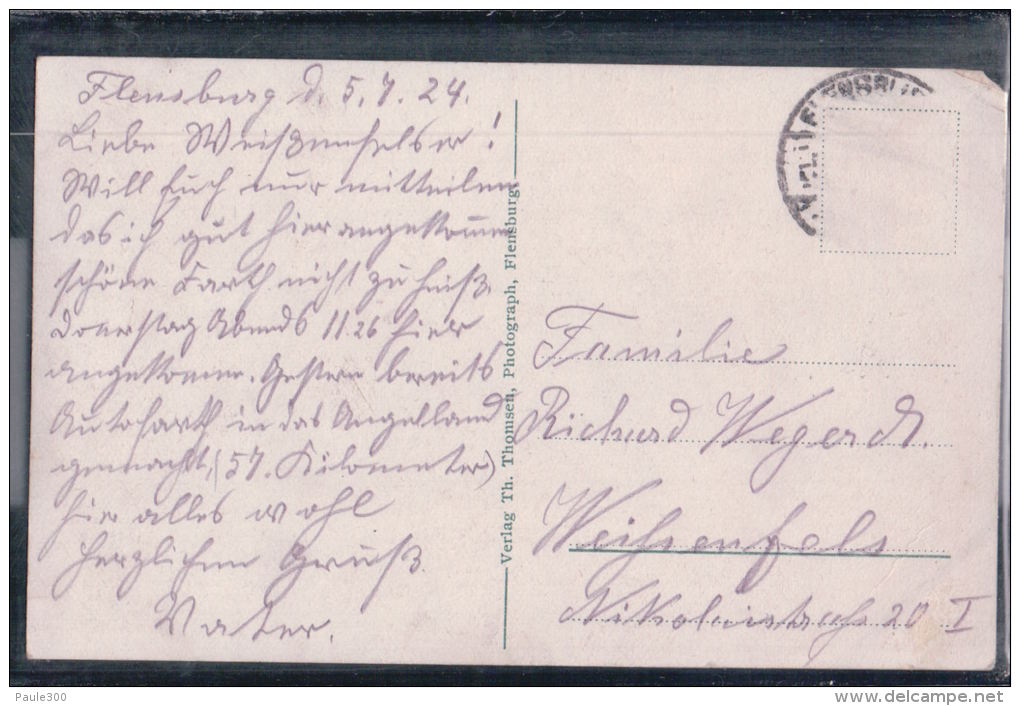 Flensburg d. 5.7.24.
Liebe Weißenfelser!
Will Euch nur mitteilen
das ich gut hier angekommen
schöne Farth nicht zu heiß.
Donerstag Abends 11.26 hier
angekomen. Gestern bereits
Autofarth in das Angelland
gemacht, (57. Kilometer)
hier alles wohl
Herzlichen Gruß
Vater.
Verlag Th. Thomsen, Photograph, Flensburg.
FLENSBU
Familie
Richard Wegerdt.
Weißenfels
Nikolaistraße 20 I
Paule300
delcampe.net